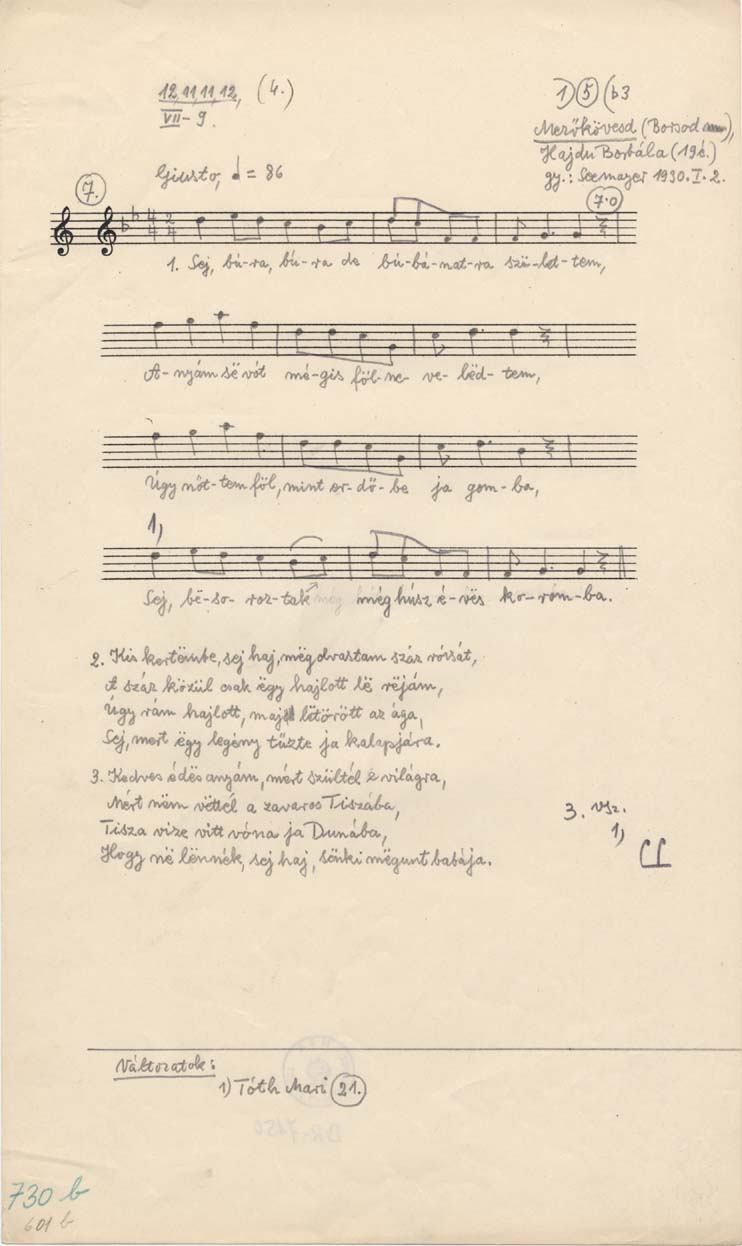 12,11,11,12, (4.)
VII-9.
1) 5 (b3
Mezőkövesd (Borsod),
Hajdu Borbála (19é.)
gy.: Seemayer 1930.I.2.
Giusto, ♩ = 86
7.
7·0
4 2
4 4
1. Sej, bú-ra, bú-ra de bú-bá-nat-ra szü-let-tem,
A-nyám së vót mé-gis föl-ne-ve-lëd-tem,
Úgy nőt-tem föl, mint er-dő-be ja gom-ba,
1,
Sej, bë-so-roz-tak még húsz é-vës ko-rom-ba.
2. Kis kertëmbe, sej haj, mëgolvastam száz rózsát,
A száz közül csak ëgy hajlott lë rëjám,
Úgy rám hajlott, majd lëtörött az ága,
Sej, mert ëgy legény tűzte ja kalapjára.
3. Kedves édës anyám, mért szültél ë világra,
Mért nëm vëttél a zavaros Tiszába,
Tisza vize vitt vóna ja Dunába,
Hogy në lënnék, sej haj, sënki mëgunt babája.
3. vsz.
1,
Változatok:
1) Tóth Mari 21.
DR-7150
730 b
601 b